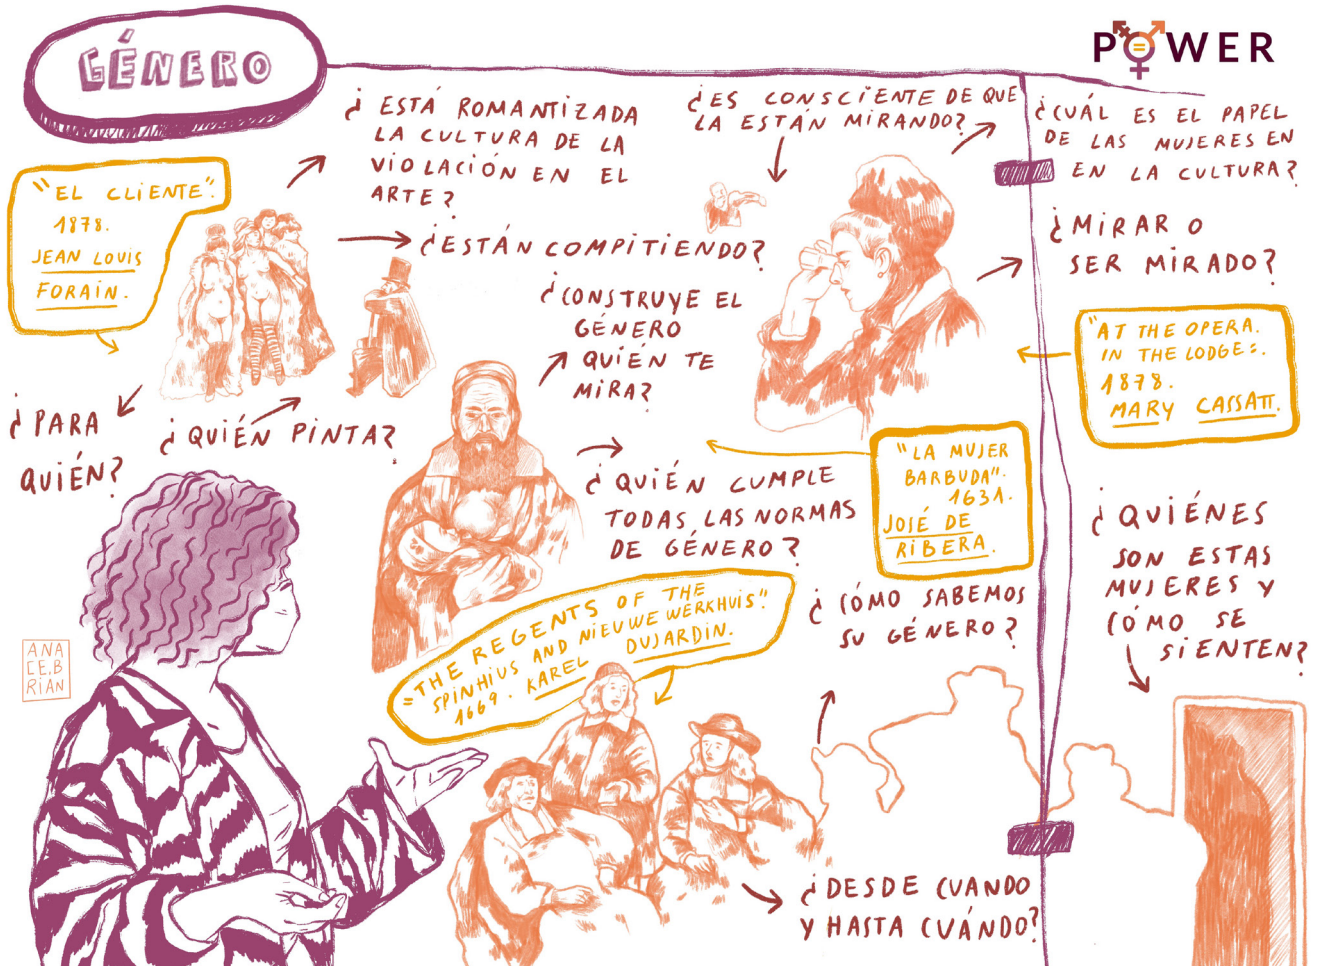 GÉNERO
POWER
¿ ESTÁ ROMANTIZADA
LA CULTURA DE LA
VIOLACIÓN EN EL
ARTE?
¿ES CONSCIENTE DE QUE
LA ESTÁN MIRANDO?
¿CUÁL ES EL PAPEL
DE LAS MUJERES EN
EN LA CULTURA?
"EL CLIENTE".
1878.
JEAN LOUIS
FORAIN.
¿ESTÁN COMPITIENDO?
¿MIRAR O
SER MIRADO?
¿CONSTRUYE EL
GÉNERO
QUIÉN TE
MIRA?
"AT THE OPERA.
IN THE LODGE".
1878.
MARY CASSATT.
¿PARA
QUIÉN?
¿QUIÉN PINTA?
"LA MUJER
BARBUDA".
1631.
JOSÉ DE
RIBERA.
¿QUIÉN CUMPLE
TODAS LAS NORMAS
DE GÉNERO?
¿QUIÉNES
SON ESTAS
MUJERES Y
CÓMO SE
SIENTEN?
"THE REGENTS OF THE
SPINHIUS AND NIEUWE WERKHUIS".
1669. KAREL DUJARDIN.
¿CÓMO SABEMOS
SU GÉNERO?
ANA
CEB
RIAN
¿DESDE CUANDO
Y HASTA CUÁNDO?